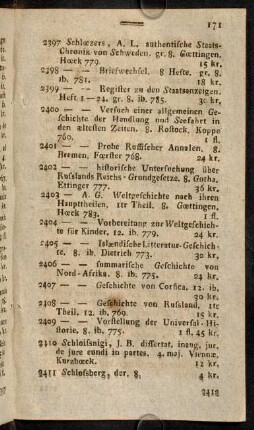 171
2397 Schlœzers, A. L. authentische Staats-
Chronik von Schweden. gr. 8. Gœttingen.
Hœck 779. 15 kr.
2398 — — Briefwechsel. 8 Hefte. gr. 8.
ib. 781. 18 kr.
2399 — — Register zu den Staatsanzeigen.
Heft 1—24. gr. 8. ib. 785. 30 kr.
2400 — — Versuch einer allgemeinen Ge-
schichte der Handlung und Seefahrt in
den æltesten Zeiten. 8. Rostock, Koppe
760. 1 fl.
2401 — — Probe Russischer Annalen. 8.
Bremen, Fœrster 768. 24 kr.
2402 — — historische Untersuchung über
Russlands Reichs-Grundgesetze. 8. Gotha.
Ettinger 777. 36 kr.
2403 — A. G. Weltgeschichte nach ihren
Haupttheilen, 1tr Theil. 8. Gœttingen,
Hœck 783. 1 fl.
2404 — — Vorbereitung zur Weltgeschich-
te für Kinder, 12. ib. 779. 24 kr.
2405 — — Islændische Litteratur-Geschich-
te. 8. ib. Dietrich 773. 30 kr.
2406 — — summarische Geschichte von
Nord-Afrika. 8. ib. 775. 24 kr.
2407 — — Geschichte von Corsica, 12. ib.
30 kr.
2408 — — Geschichte von Russland, 1tr
Theil. 12. ib. 769. 15 kr.
2409 — — Vorstellung der Universal-Hi-
storie. 8. ib. 775. 1 fl. 45 kr.
2410 Schloissnigi, J. B. dissertat. inaug. jur.
de jure eundi in partes. 4. maj. Viennæ,
Kurzbœck. 12 kr.
2411 Schlossberg, der, 8. 4 kr.
2412